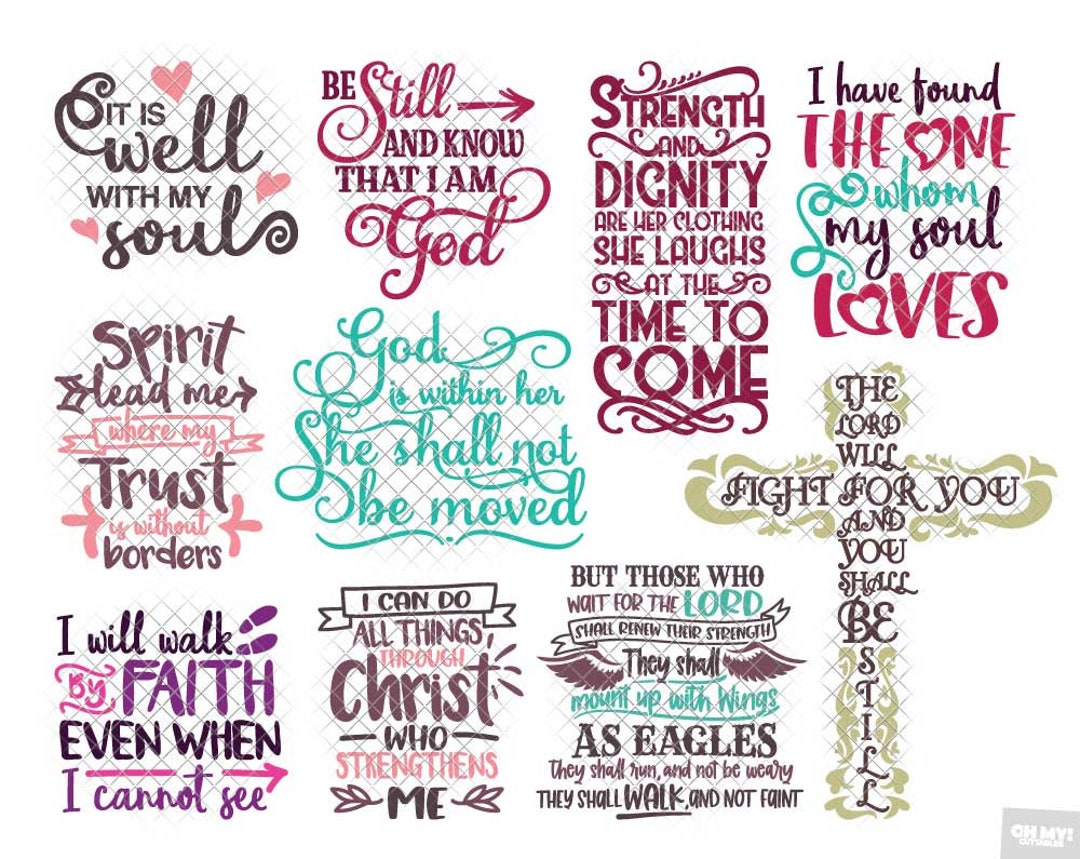 IT IS
well
WITH MY
soul
BE Still
AND KNOW
THAT I AM
God
STRENGTH
AND
DIGNITY
ARE HER CLOTHING
SHE LAUGHS
AT THE
TIME TO
COME
I have found
THE ONE
whom
my soul
LOVES
Spirit
lead me
where my
Trust
is without
borders
God
is within her
She shall not
be moved
THE
LORD
WILL
FIGHT FOR YOU
AND
YOU
SHALL
BE
S
T
I
L
L
I will walk
By FAITH
EVEN WHEN
I cannot see
I CAN DO
ALL THINGS
THROUGH
Christ
WHO
STRENGTHENS
ME
BUT THOSE WHO
WAIT FOR THE LORD
SHALL RENEW THEIR STRENGTH
They shall
mount up with Wings
AS EAGLES
they shall run, and not be weary
THEY SHALL WALK, AND NOT FAINT
OH MY!
CUTTABLES